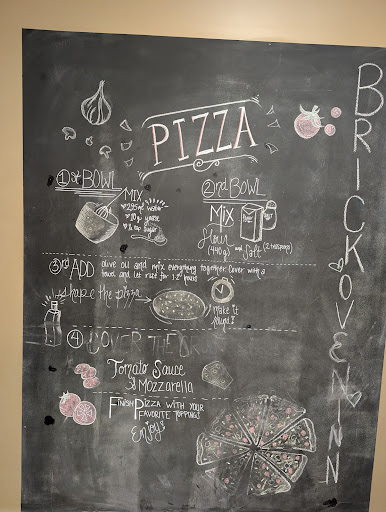 PIZZA
1 1st BOWL
MIX
295ml water
10g yeast
1 tsp sugar
2 2nd BOWL
MIX
flour
(440g) and Salt (2 teaspoons)
3 3rd ADD olive oil and mix everything together cover with a
towel and let rise for 1-2 hours
shape the pizza
make it
round!
4 COVER THE
Tomato Sauce
& Mozzarella
FINISH PIZZA WITH YOUR
FAVORITE TOPPINGS
Enjoy!
BRICKOVEN INN